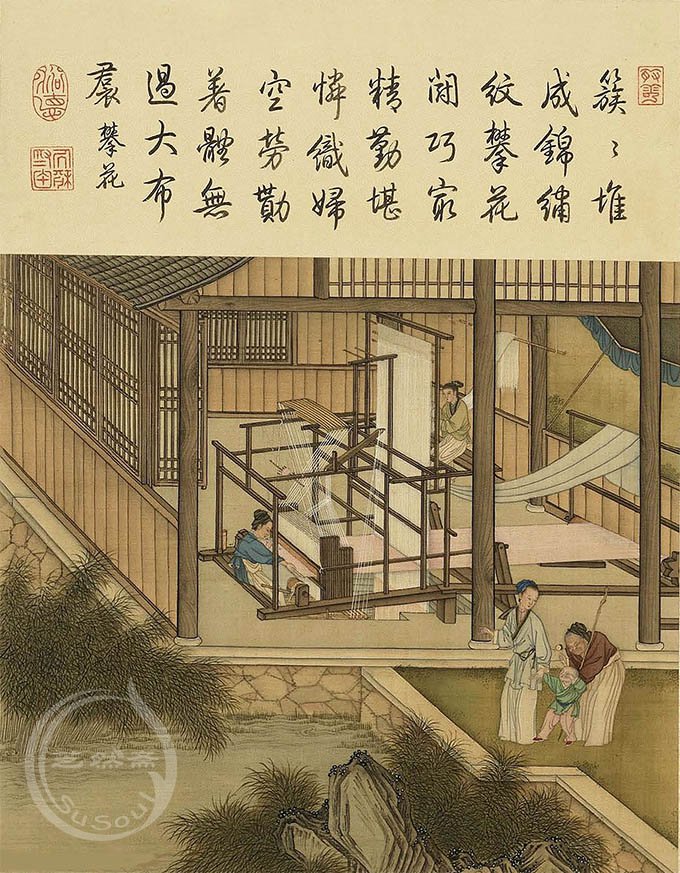 簇〻堆
成錦繡
紋攀花
閗巧㝡
精勤堪
憐織婦
空勞勩
著體無
過大布
裠 攀花
SuSoul